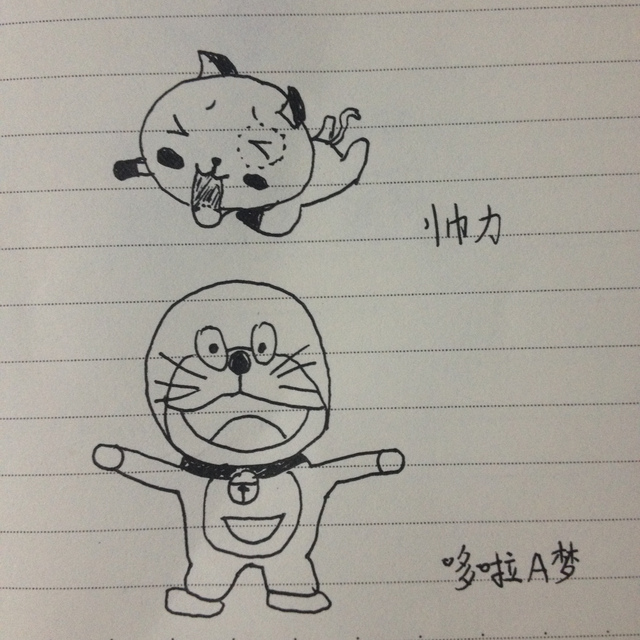 帅力
哆啦A梦